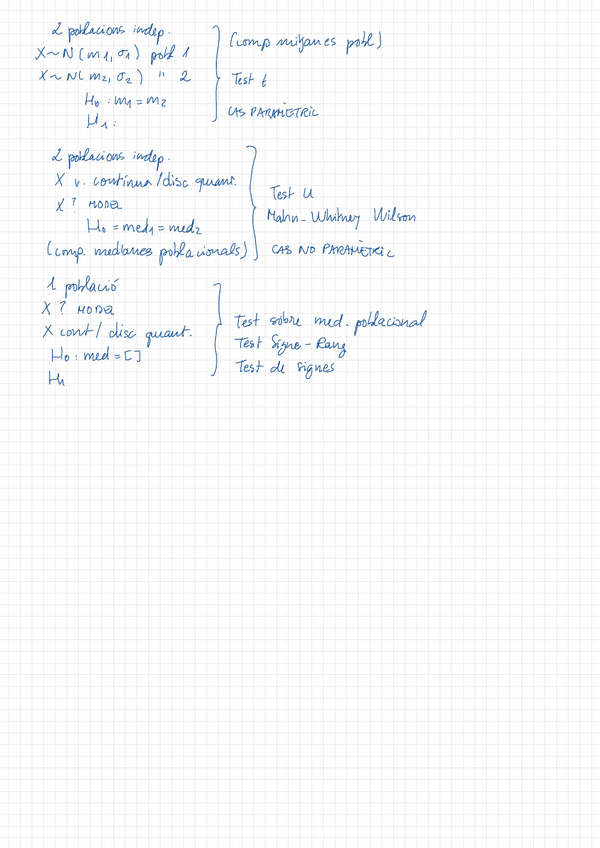 2 poblacions indep.
X ~ N(m1, σ1) pobl 1
X ~ N(m2, σ2) " 2
H0 : m1 = m2
H1 :
(comp mitjanes pobl)
Test t
CAS PARAMÈTRIC
2 poblacions indep.
X v. contínua / disc quant.
X ? MODEL
H0 = med1 = med2
(comp. medianes poblacionals)
Test U
Mahn-Whitney Wilson
CAS NO PARAMÈTRIC
1 població
X ? MODEL
X cont / disc quant.
H0 : med = []
H1
Test sobre med. poblacional
Test Signe-Rang
Test de signes